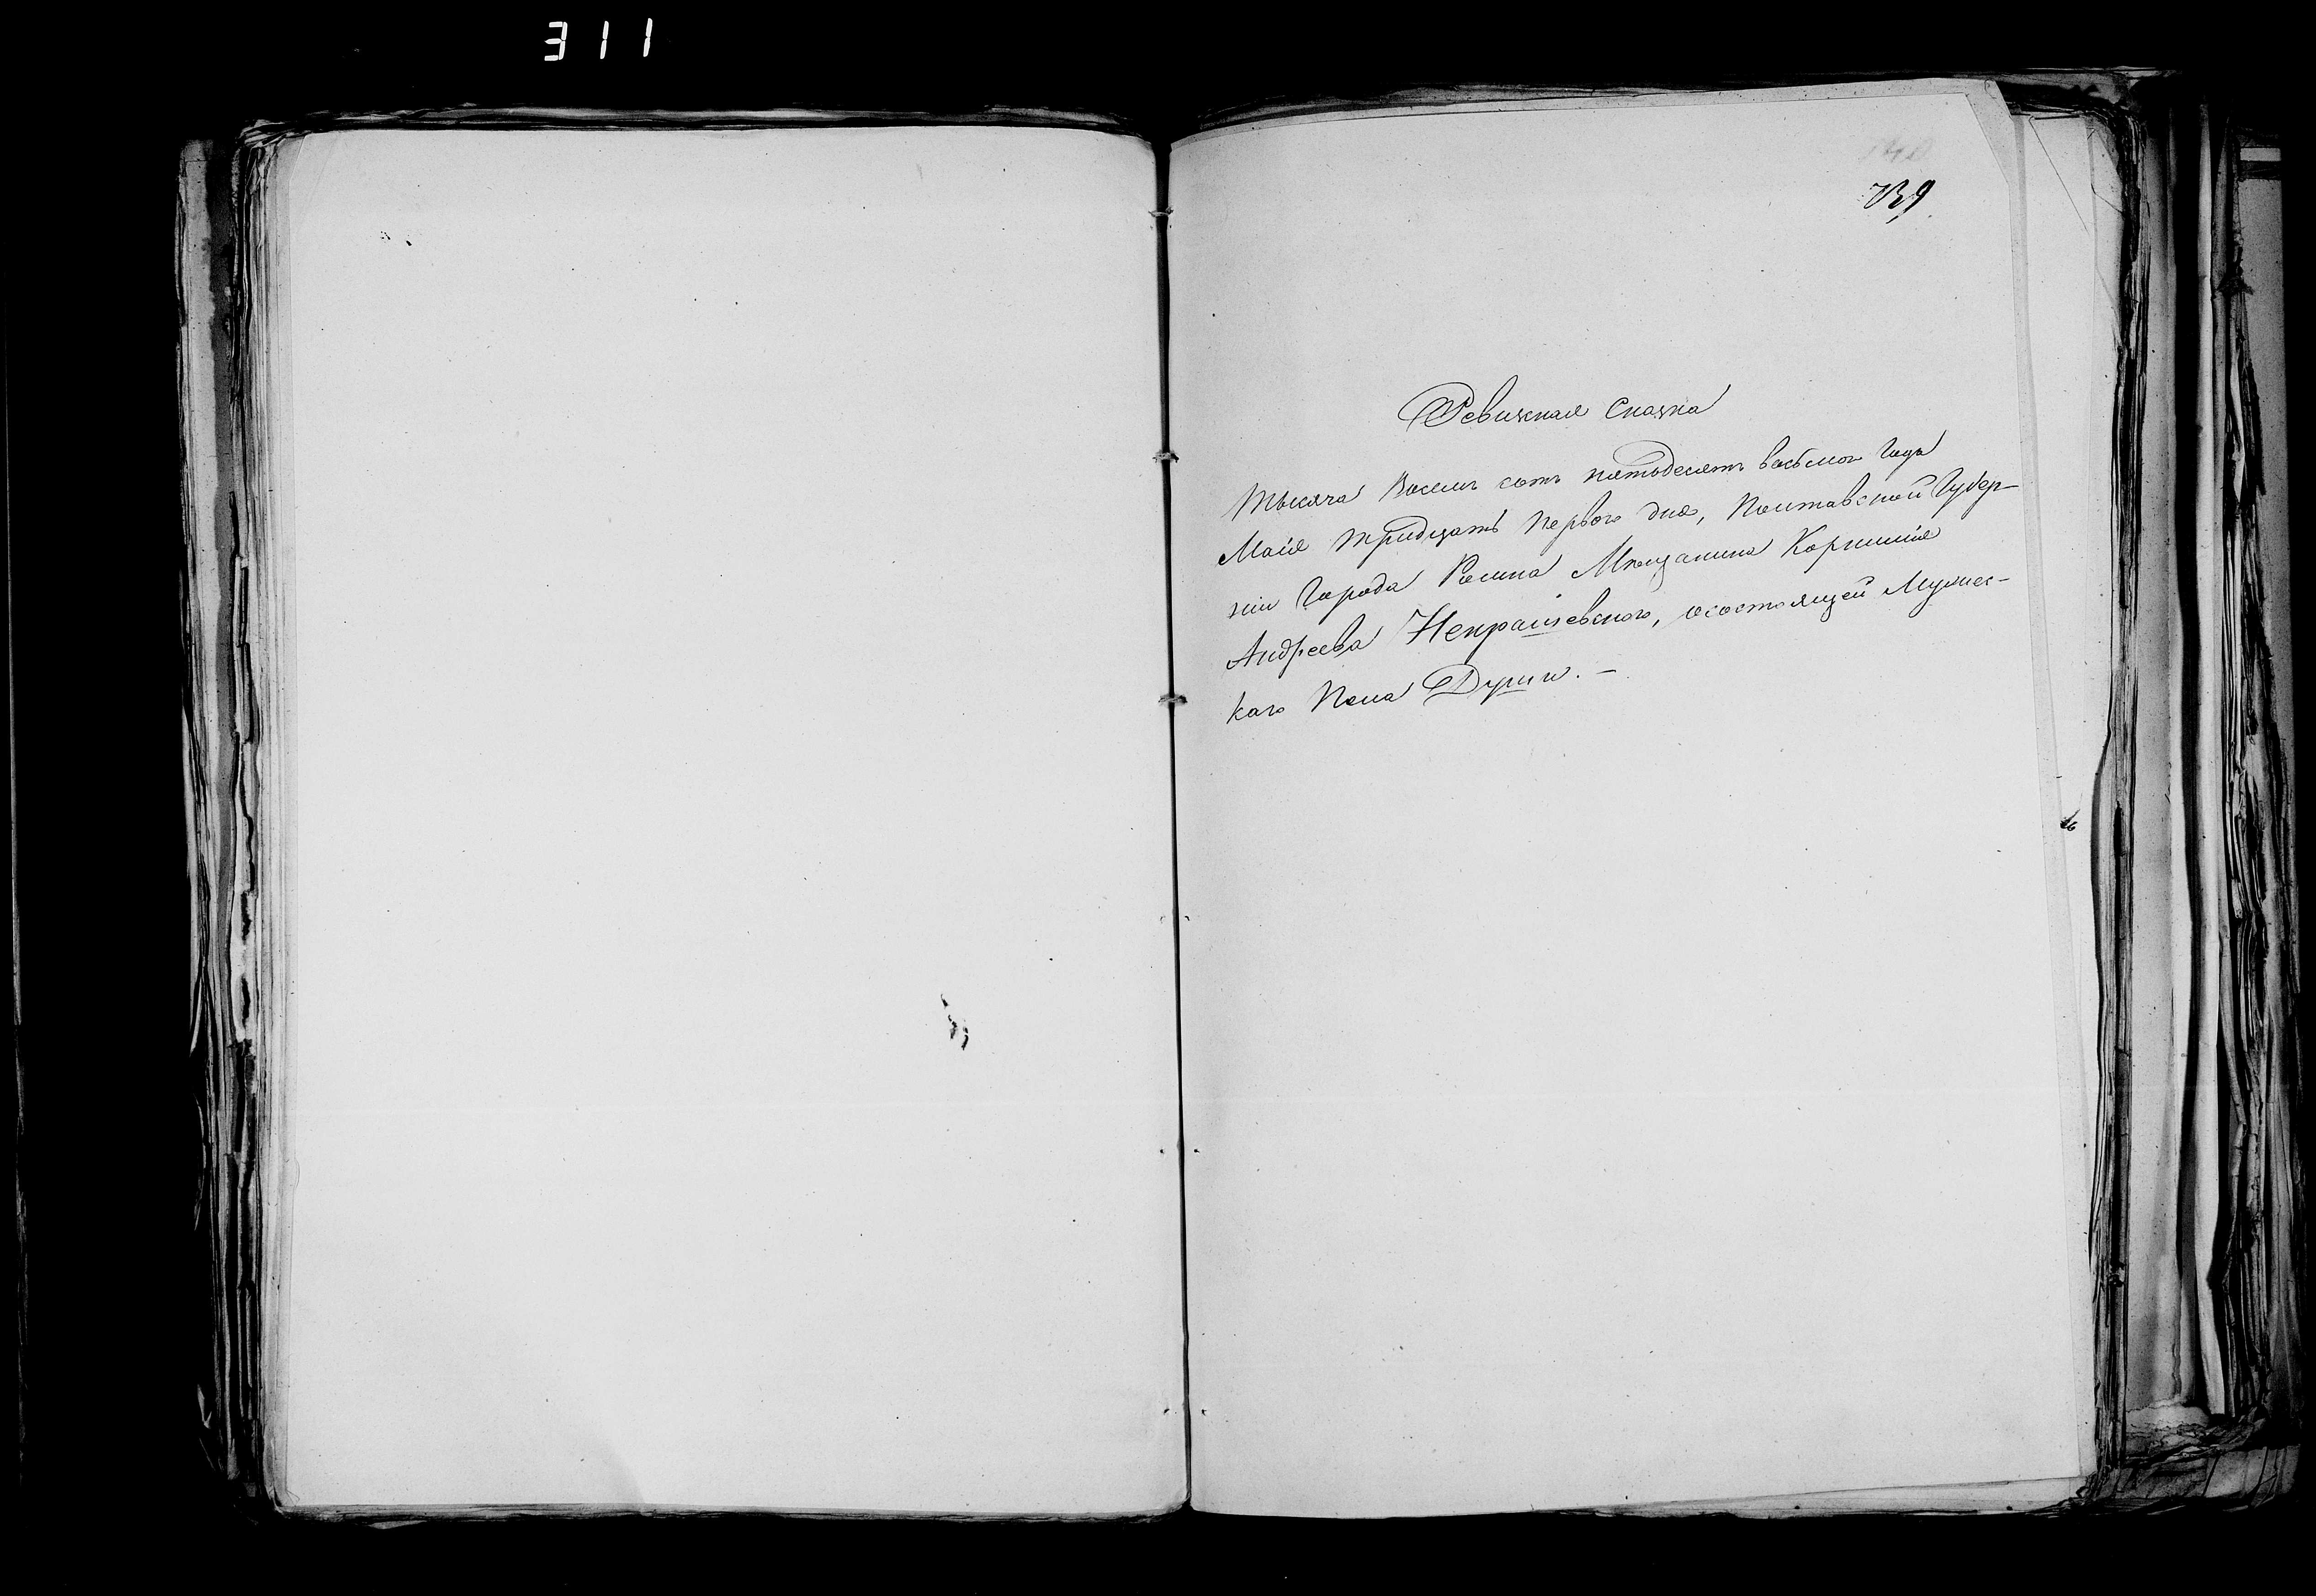 311
739
Ревизская Сказка
Тысяча Восемь сотъ пятьдесятъ восьмого Года
Маія тридцать первого дня, Полтавской Губер-
ніи Города Ромна Мещанина Корнилія
Андреева Некрашевского, осостоящей Мужес-
каго Пола Души. —